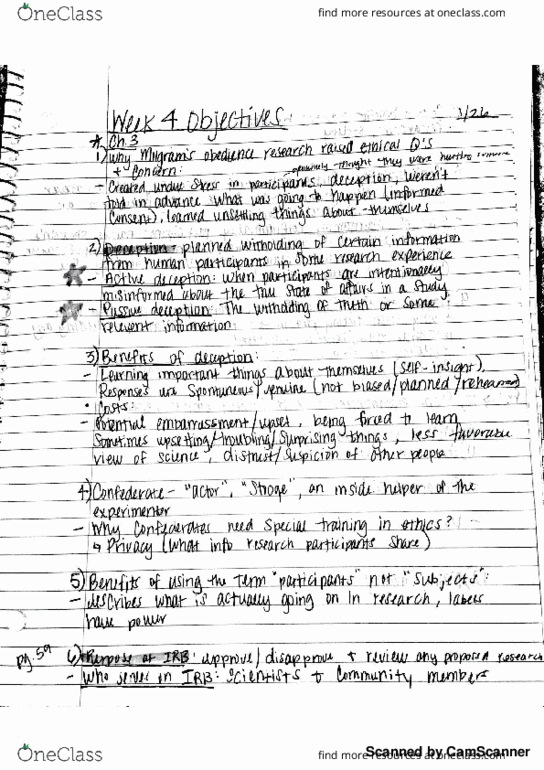 OneClass
find more resources at oneclass.com
Week 4 Objectives
1/26
* Ch 3
1) Why Milgram's obedience research raised ethical Q's
+ Concern: genuinely thought they were hurting someone
- Created undue stress in participants, deception, weren't
told in advance what was going to happen (informed
consent), learned unsettling things about themselves
2) Deception - planned witholding of certain information
from human participants in some research experience
- Active deception: when participants are intentionally
misinformed about the true state of affairs in a study
- Passive deception: The witholding of truth or some
relevent information
3) Benefits of deception:
- Learning important things about themselves (self-insight),
Responses are spontaneous/genuine (not biased/planned/rehearsed)
• Costs:
- Potential embarrassment/upset, being forced to learn
sometimes upsetting/troubling/surprising things, less favorable
view of science, distrust/suspicion of other people
4) Confederate - "actor", "Stooge", an inside helper of the
experimentor
- Why Confederates need special training in ethics?
↳ Privacy (what info research participants share)
5) Benefits of using the term "participants" not "subjects":
- describes what is actually going on in research, labels
have power
pg. 59
6) Purpose of IRB: approve/disapprove + review any proposed research
- Who serves in IRB: scientists + community members
OneClass
find more resources at oneclass.com
Scanned by CamScanner